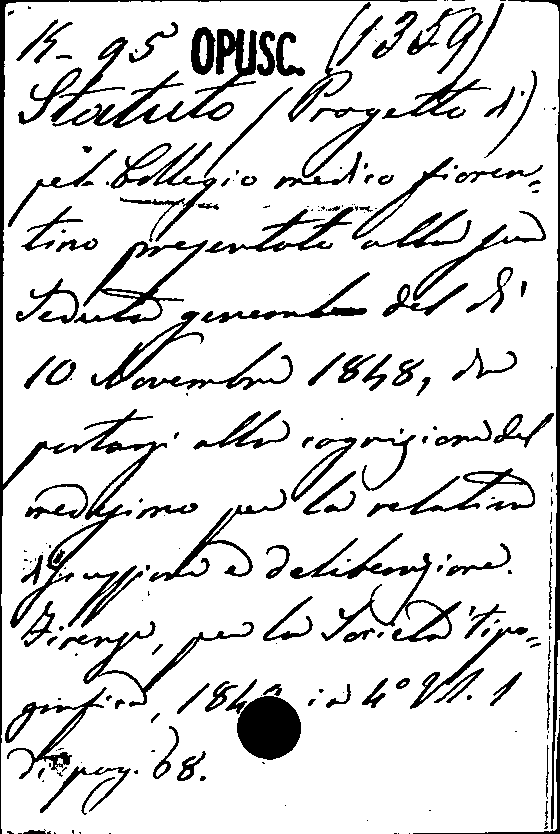 K-95 OPUSC. (1359)
Statuto (Progetto di)
pel Collegio medico fioren=
tino presentato alla sua
seduta generale del dì
10 Novembre 1848, da
portarsi alla cognizione del
medesimo per la relativa
discussione e deliberazione.
Firenze, per la Società tipo=
grafica, 184 in 4° Vol. 1
di pag. 68.